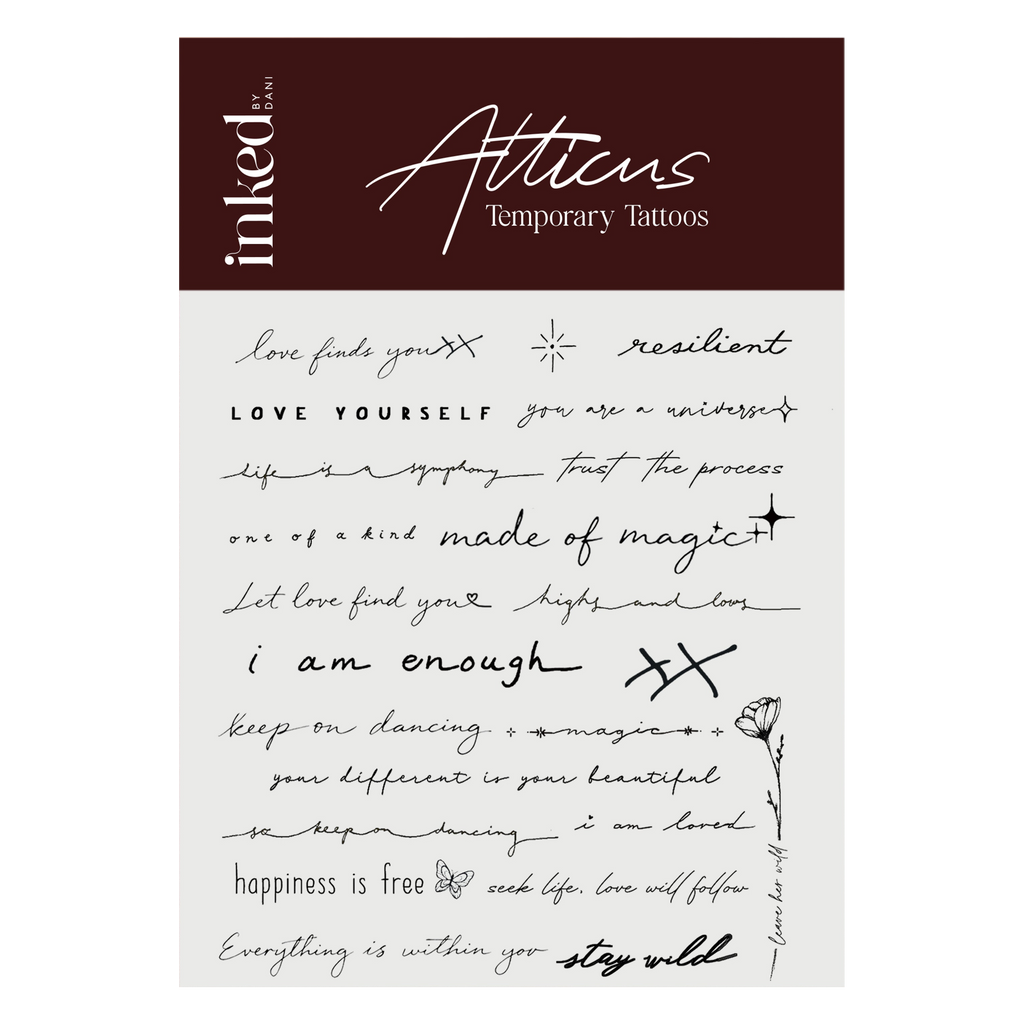 inked
BY DANI
Atticus
Temporary Tattoos
love finds you XX
resilient
LOVE YOURSELF
you are a universe
life is a symphony
trust the process
one of a kind
made of magic
Let love find you
highs and lows
i am enough
XX
keep on dancing
magic
your different is your beautiful
so keep on dancing
i am loved
happiness is free
seek life, love will follow
leave her wild
Everything is within you
stay wild